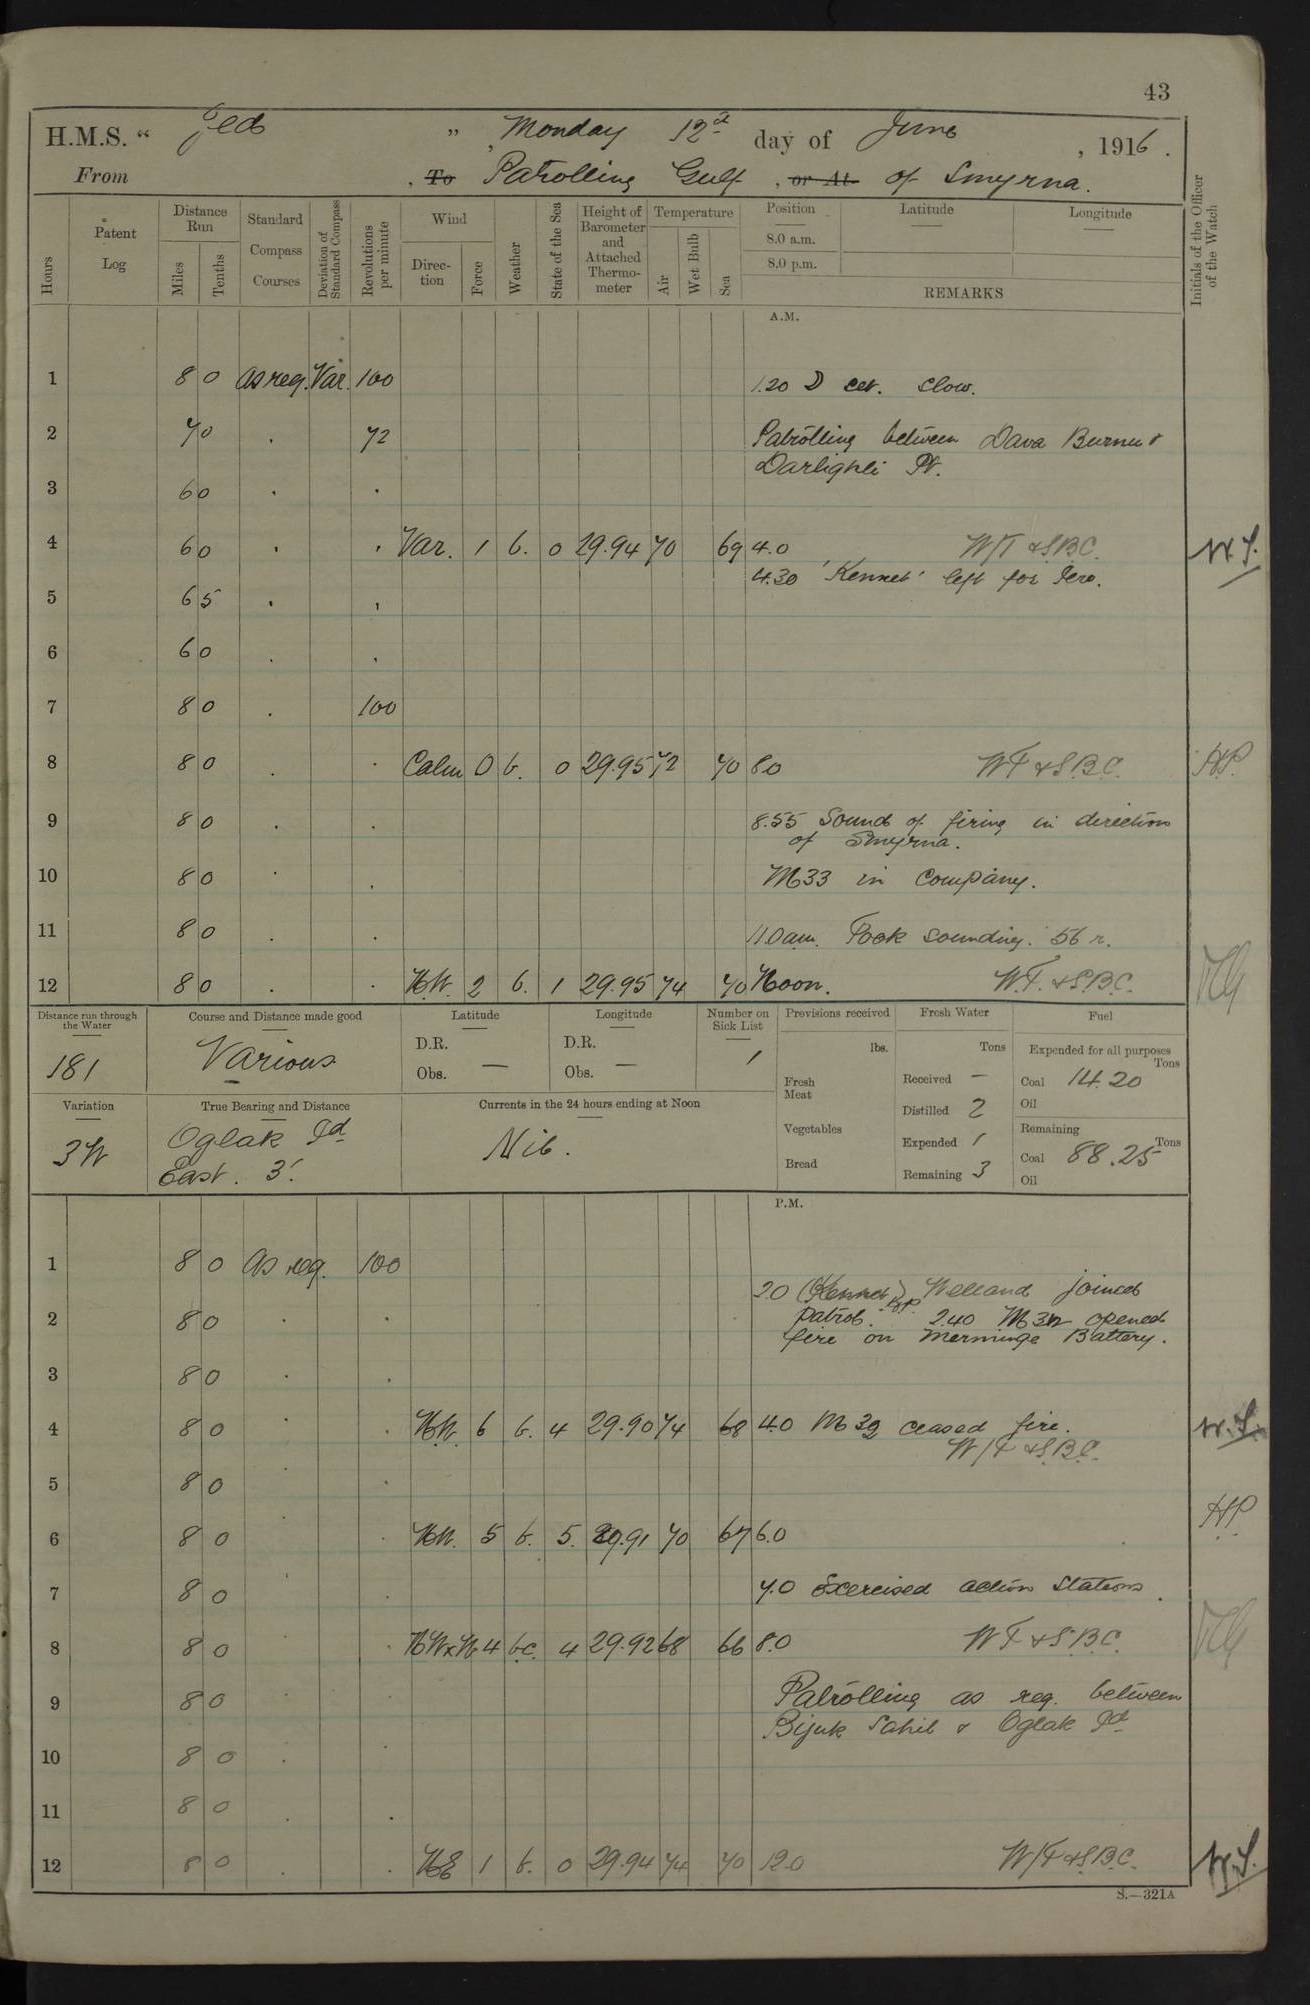 43
H.M.S. “ Jed ” , Monday 12th day of June , 1916 .
From , To Patrolling Gulf , or At of Smyrna.
Hours Patent Log Distance Run Miles Tenths Standard Compass Courses Deviation of Standard Compass Revolutions per minute Wind Direction Force Weather State of the Sea Height of Barometer and Attached Thermometer Temperature Air Wet Bulb Sea Position Latitude Longitude Initials of the Officer of the Watch
8.0 a.m.
8.0 p.m.
REMARKS
A.M.
1 8 0 As req. Var. 100 1.20 D cer. slow.
2 7 0 . 72 Patrolling between Dava Burnu &
Darlighli Pt.
3 6 0 . .
4 6 0 . . Var. 1 b. 0 29.94 70 69 4.0 W/T & S.B.C. W.S.
4.30 'Kennet' left for Iero.
5 6 5 . .
6 6 0 . .
7 8 0 . 100
8 8 0 . . Calm 0 b. 0 29.95 72 70 8.0 WT & S.B.C. HP.
9 8 0 . . 8.55 Sound of firing in direction
of Smyrna.
10 8 0 . . M33 in company.
11 8 0 . . 11.0am. Took sounding. 56
12 8 0 . . NW. 2 b. 1 29.95 74 70 Noon. W.T. & S.B.C.
Distance run through the Water Course and Distance made good Latitude Longitude Number on Sick List Provisions received Fresh Water Fuel
181 Various D.R. Obs. — D.R. Obs. — 1 lbs. Tons Expended for all purposes Tons
Fresh Meat Received — Coal 14.20
Oil
Variation True Bearing and Distance Currents in the 24 hours ending at Noon Distilled 2
3W Oglak Id East. 3'. Nil. Vegetables Expended 1 Remaining Tons
Bread Remaining 3 Coal 88.25
Oil
P.M.
1 8 0 As req. 100
2.0 (Kennet) HP. Welland joined
2 8 0 . . patrol. 2.40 M32 opened
fire on Merminge Battery.
3 8 0 . .
4 8 0 . . NW. 6 b. 4 29.90 74 68 4.0 M32 ceased fire. W.S.
W/T & S.B.C.
5 8 0 .
6 8 0 . NW. 5 b. 5. 29.91 70 67 6.0 HP.
7 8 0 . . 7.0 Exercised action Stations.
8 8 0 . NWxW 4 bc. 4 29.92 68 66 8.0 WT & S.B.C.
9 8 0 . . Patrolling as req. between
Bijuk Sahib & Oglak Id
10 8 0 . .
11 8 0 . .
12 8 0 . . NE 1 b. 0 29.94 74 70 12.0 W/T & S.B.C. W.S.
S.—321A